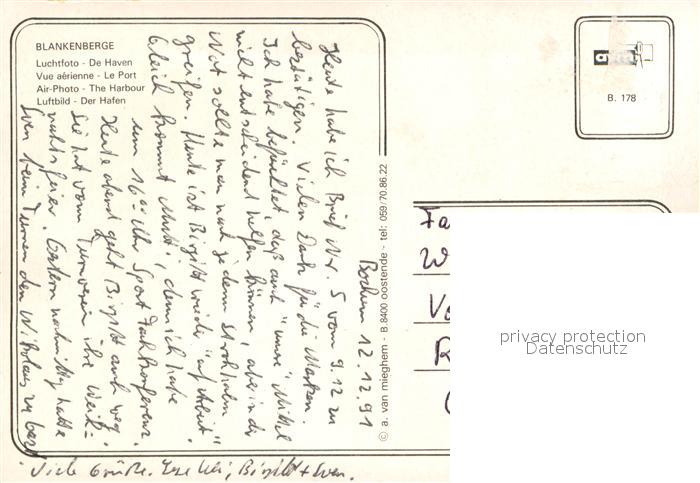 BLANKENBERGE
Luchtfoto - De Haven
Vue aérienne - Le Port
Air-Photo - The Harbour
Luftbild - Der Hafen
B. 178
© a. van mieghem - B.8400 oostende - tel: 059/70.86.22
Bochum 12.12.91
Heute habe ich Brief Nr. 5 vom 9.12 zu
bestätigen. Vielen Dank für die Marken.
Ich habe befürchtet, daß auch "unsere" Mittel
nicht entscheidend helfen können, aber in der
Not sollte man nach jedem Strohhalm
greifen. Heute ist Birgitt wieder "auf Arbeit".
Gleich kommt Mutti, denn ich habe
um 16⁰⁰ Uhr Sport Fachkonferenz.
Heute abend geht Birgitt auch weg.
Sie hat vom Turnverein ihre Weih-
nachtsfeier. Gestern nachmittag hatte
Sven beim Turnen den Nikolaus zu
Viele Grüße. Birgitt + Sven.
Fa
W
Vo
R
privacy protection
Datenschutz